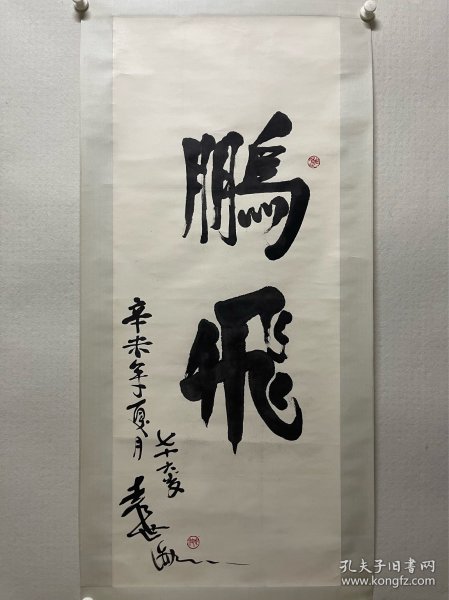 鵬
飛
辛未年夏月
七十六歲
袁世海
孔夫子旧书网
www.kongfz.com